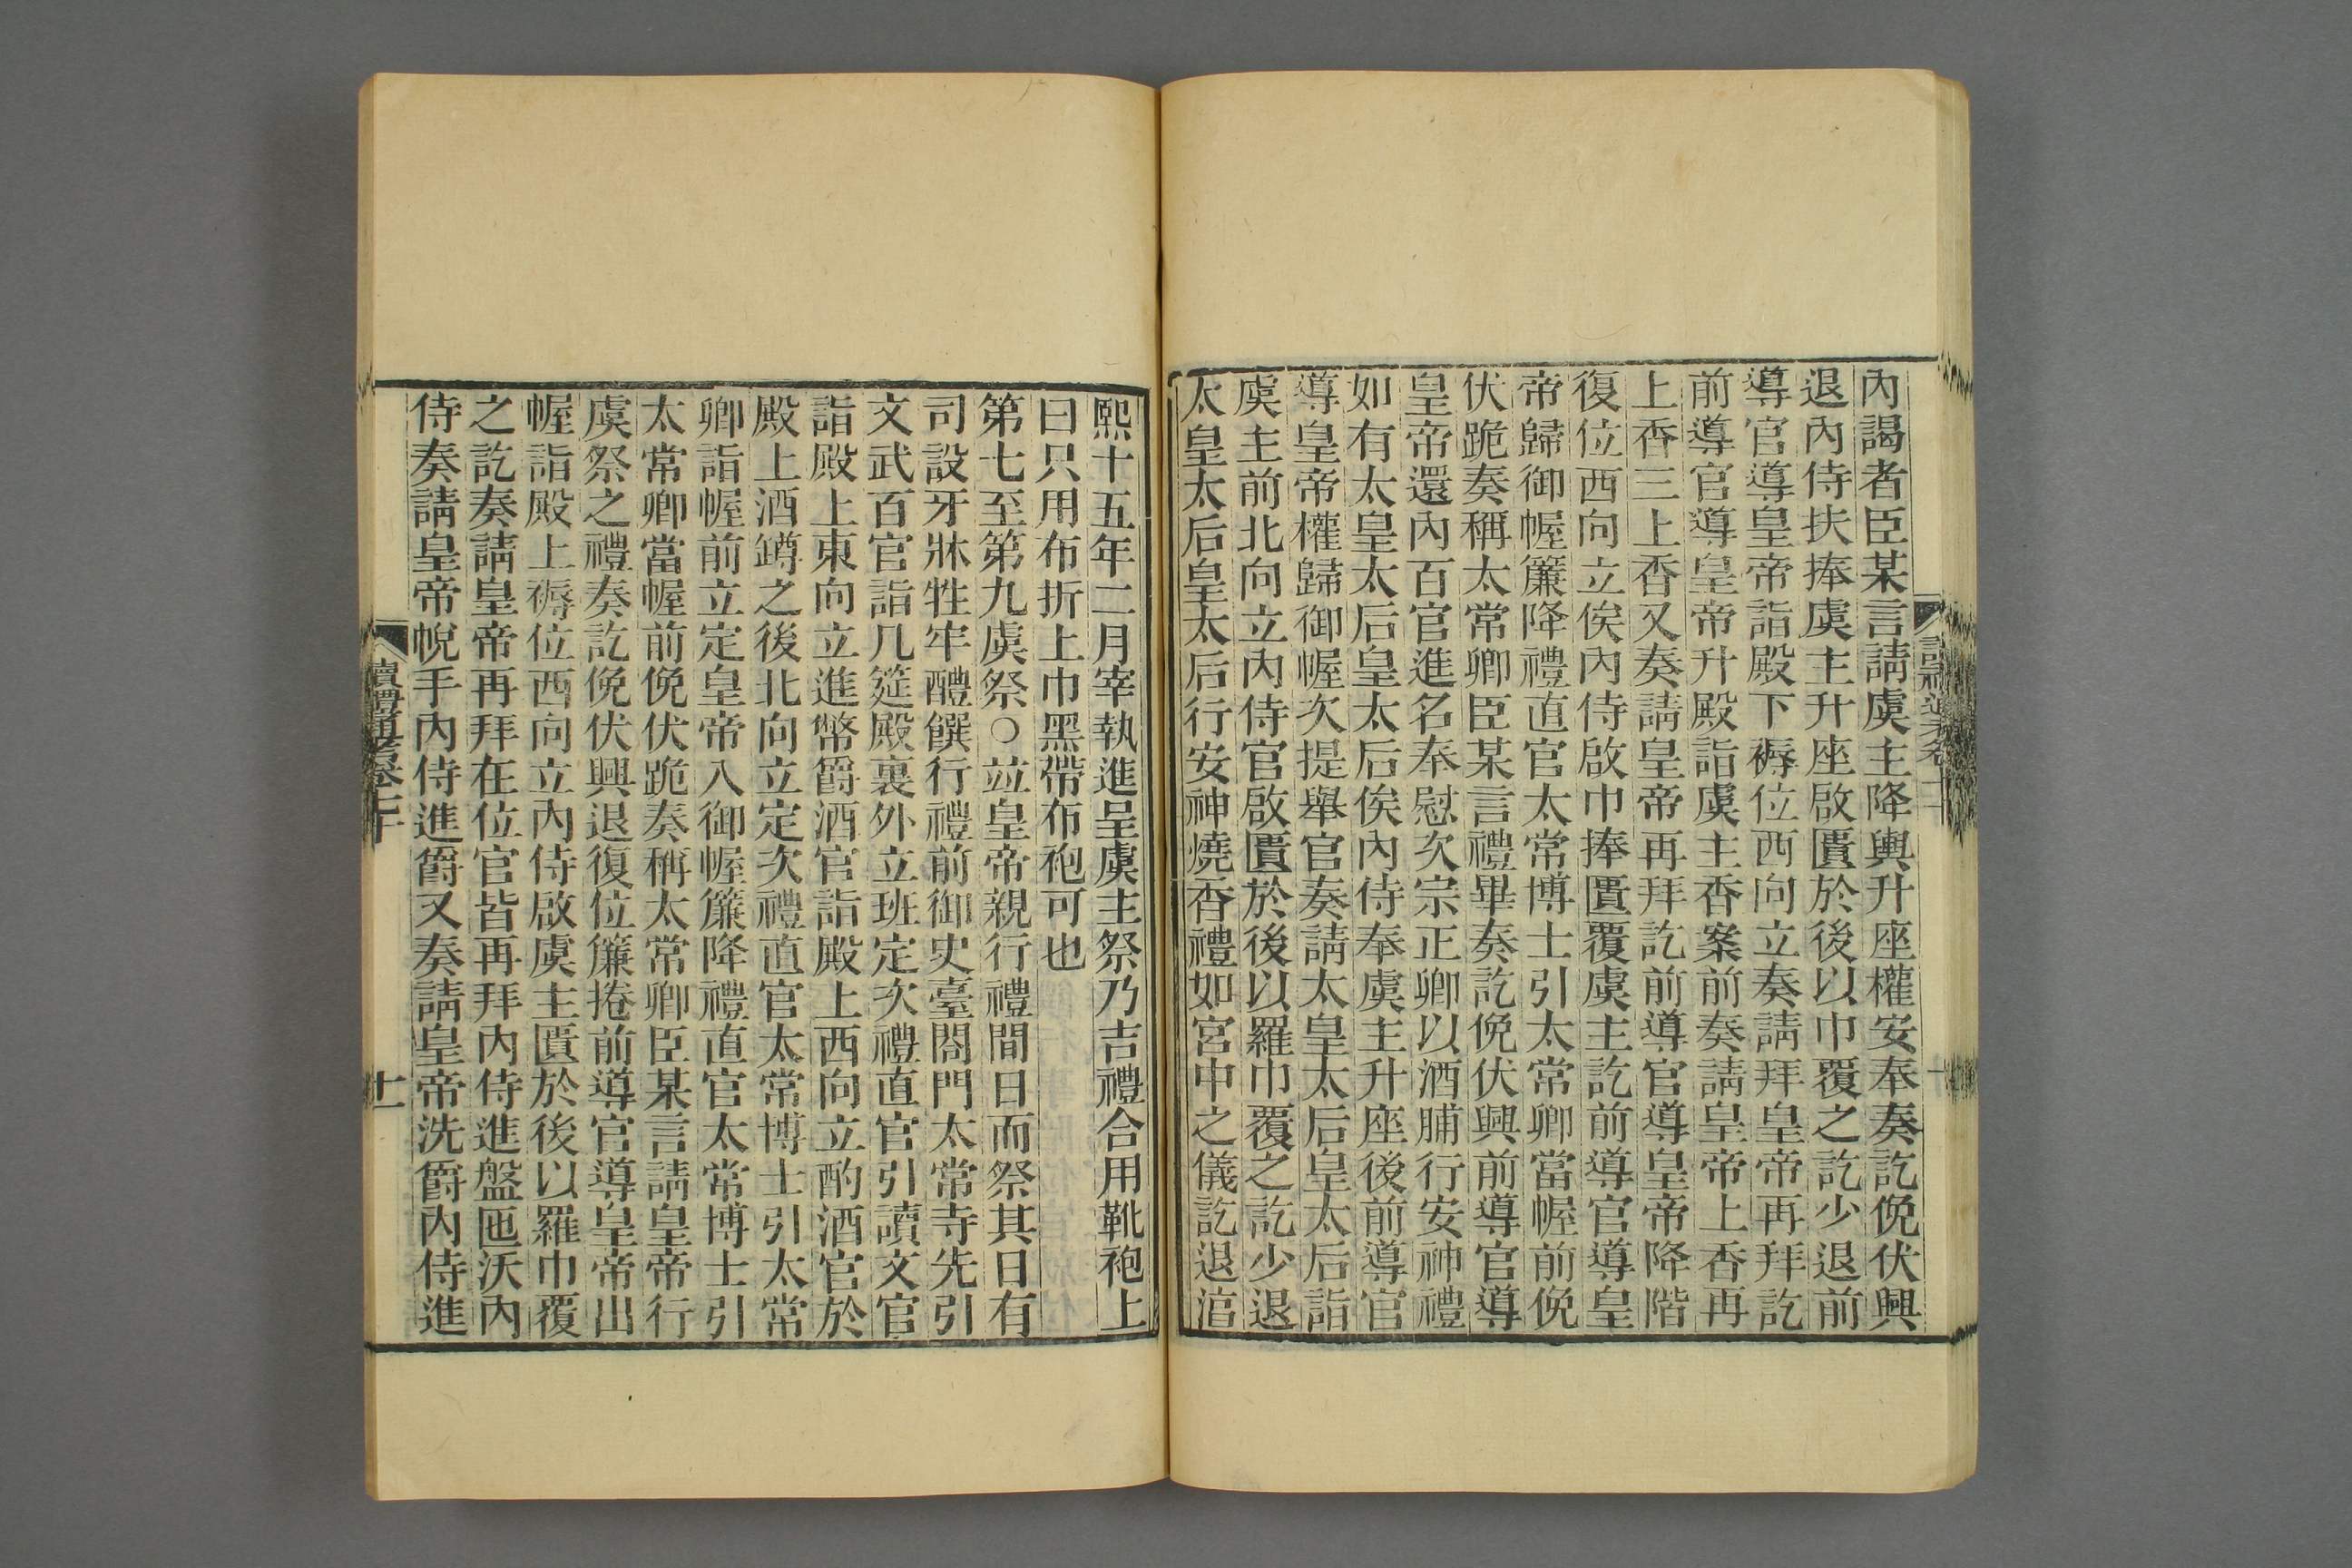 內謁者臣某言請虞主降輿升座權安奉奏訖俛伏興
退內侍扶捧虞主升座啟匱於後以巾覆之訖少退前
導官導皇帝詣殿下褥位西向立奏請拜皇帝再拜訖
前導官導皇帝升殿詣虞主香案前奏請皇帝上香再
上香三上香又奏請皇帝再拜訖前導官導皇帝降階
復位西向立俟內侍啟巾捧匱覆虞主訖前導官導皇
帝歸御幄簾降禮直官太常博士引太常卿當幄前俛
伏跪奏稱太常卿臣某言禮畢奏訖俛伏興前導官導
皇帝還內百官進名奉慰次宗正卿以酒脯行安神禮
如有太皇太后皇太后俟內侍奉虞主升座後前導官
導皇帝權歸御幄次提舉官奏請太皇太后皇太后詣
虞主前北向立內侍官啟匱於後以羅巾覆之訖少退
太皇太后皇太后行安神燒香禮如宮中之儀訖退淳
熙十五年二月宰執進呈虞主祭乃吉禮合用靴袍上
曰只用布折上巾黑帶布袍可也
第七至第九虞祭○竝皇帝親行禮間日而祭其日有
司設牙牀牲牢醴饌行禮前御史臺閤門太常寺先引
文武百官詣几筵殿裏外立班定次禮直官引讀文官
詣殿上東向立進幣爵酒官詣殿上西向立酌酒官於
殿上酒罇之後北向立定次禮直官太常博士引太常
卿詣幄前立定皇帝入御幄簾降禮直官太常博士引
太常卿當幄前俛伏跪奏稱太常卿臣某言請皇帝行
虞祭之禮奏訖俛伏興退復位簾捲前導官導皇帝出
幄詣殿上褥位西向立內侍啟虞主匱於後以羅巾覆
之訖奏請皇帝再拜在位官皆再拜內侍進盤匜沃內
侍奏請皇帝帨手內侍進爵又奏請皇帝洗爵內侍進
讀禮通考卷六十
十一